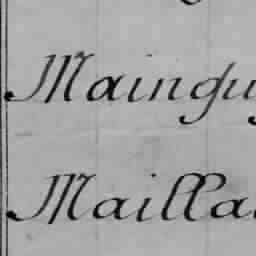 Maingu
Mailla